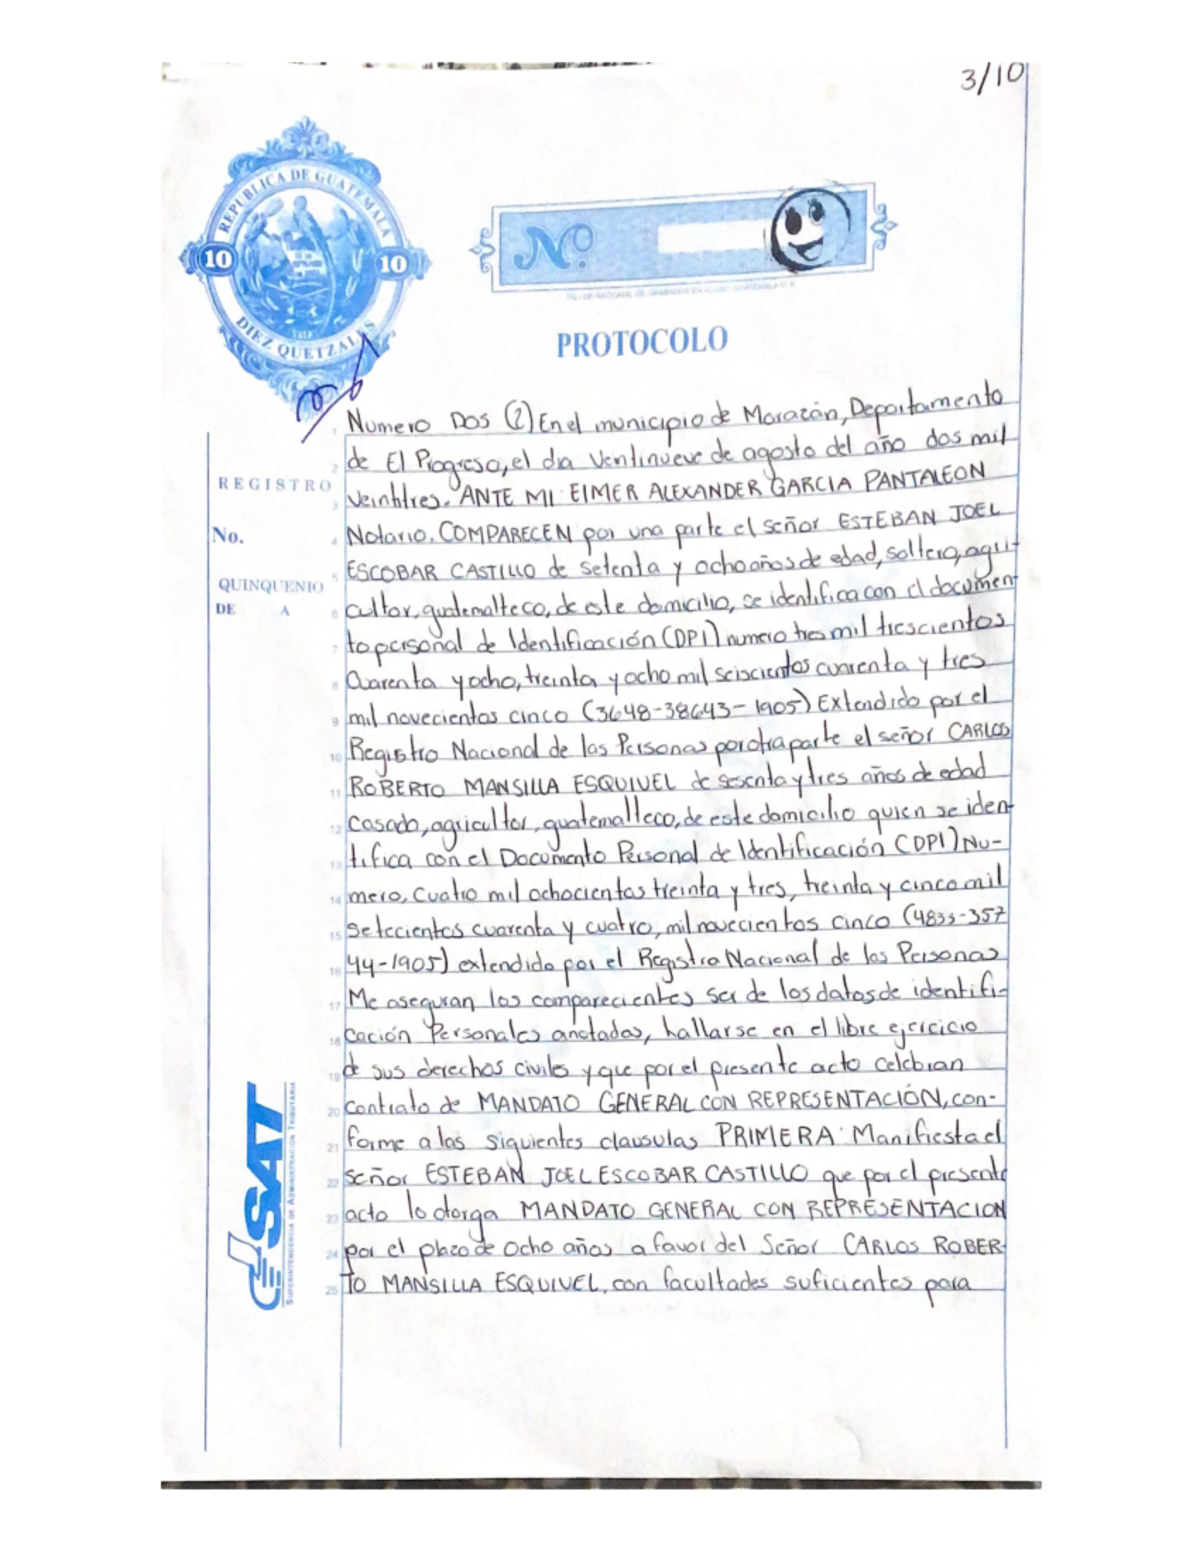 3/10
REPUBLICA DE GUATEMALA
10 10
DIEZ QUETZALES
Nº
PROTOCOLO
REGISTRO
No.
QUINQUENIO
DE A
1 Numero Dos (2) En el municipio de Morazán, Departamento
2 de El Progreso, el dia Ventinueve de agosto del año dos mil
3 veintitres. ANTE MI: EIMER ALEXANDER GARCIA PANTALEON
4 Notario. COMPARECEN por una parte el señor ESTEBAN JOEL
5 ESCOBAR CASTILLO de setenta y ocho años de edad, soltero, agri-
6 cultor, guatemalteco, de este domicilio, se identifica con el documen-
7 to personal de Identificación (DPI) numero tres mil trescientos
8 Cuarenta y ocho, treinta y ocho mil seiscientos cuarenta y tres
9 mil novecientos cinco (3648-38643-1905) Extendido por el
10 Registro Nacional de las Personas por otra parte el señor CARLOS
11 ROBERTO MANSILLA ESQUIVEL de sesenta y tres años de edad
12 casado, agricultor, guatemalteco, de este domicilio quien se iden-
13 tifica con el Documento Personal de Identificación (DPI) Nu-
14 mero, cuatro mil ochocientos treinta y tres, treinta y cinco mil
15 setecientos cuarenta y cuatro, mil novecientos cinco (4833-357
16 44-1905) extendido por el Registro Nacional de las Personas
17 Me aseguran los comparecientes ser de los datos de identifi-
18 cación Personales anotados, hallarse en el libre ejercicio
19 de sus derechos civiles y que por el presente acto celebran
20 contrato de MANDATO GENERAL CON REPRESENTACIÓN, con-
21 forme a las siguientes clausulas PRIMERA: Manifiesta el
22 señor ESTEBAN JOEL ESCOBAR CASTILLO que por el presente
23 acto lo otorga MANDATO GENERAL CON REPRESENTACION
24 por el plazo de ocho años a favor del Señor CARLOS ROBER-
25 TO MANSILLA ESQUIVEL, con facultades suficientes para
SAT
SUPERINTENDENCIA DE ADMINISTRACIÓN TRIBUTARIA